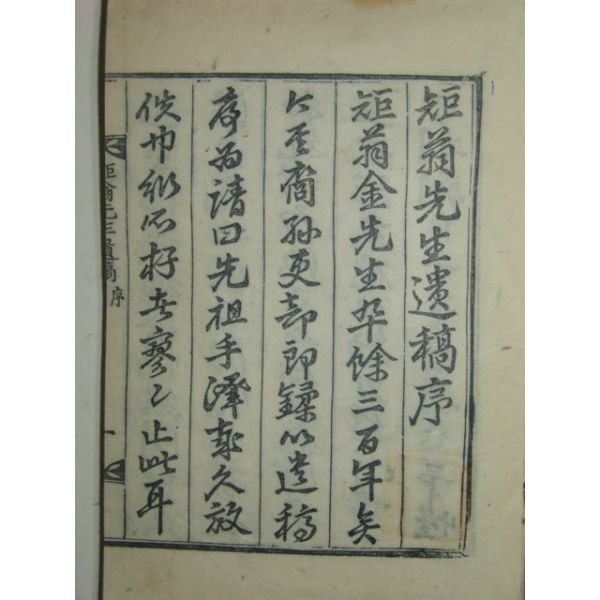 矩翁先生遺稿序
矩翁金先生卒餘三百年矣
今裔孫吏部郎以遺稿
序为請曰先祖手澤歲久放
佚巾衍所存者寥〻止此耳
矩翁先生遺稿 序 一